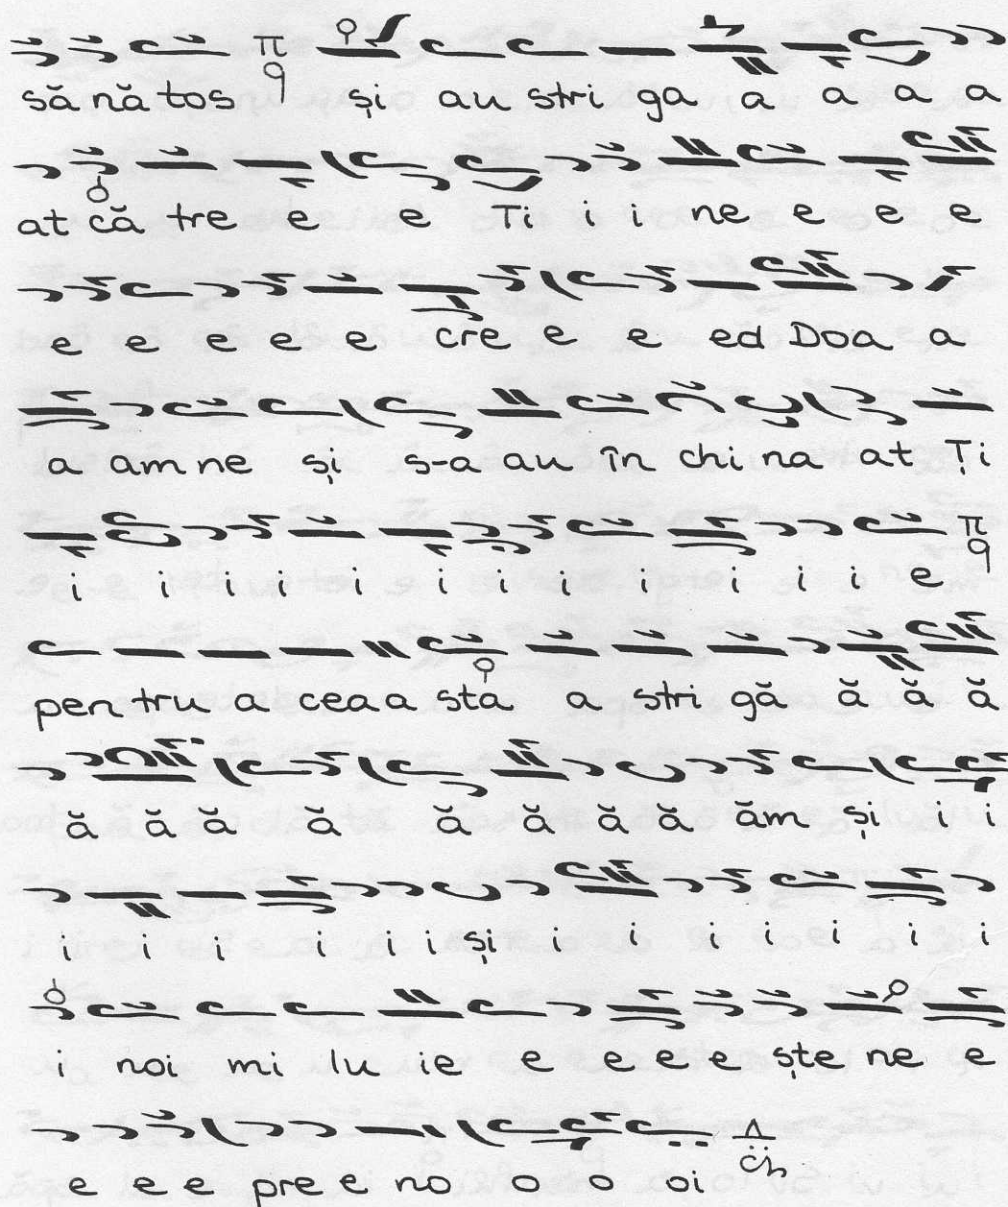 să nă tos și au stri ga a a a a
at că tre e e Ți i i ne e e e
e e e e e cre e e ed Doa a
a am ne și s-a au în chi na at Ți
i i i i i i i i i i i e
pen tru a ceaa sta a stri gă ă ă ă
ă ă ă ă ă ă ă ă ăm și i i
i i i i i i și i i i i i i i
i noi mi lu ie e e e e ște ne e
e e e pre e no o o oi